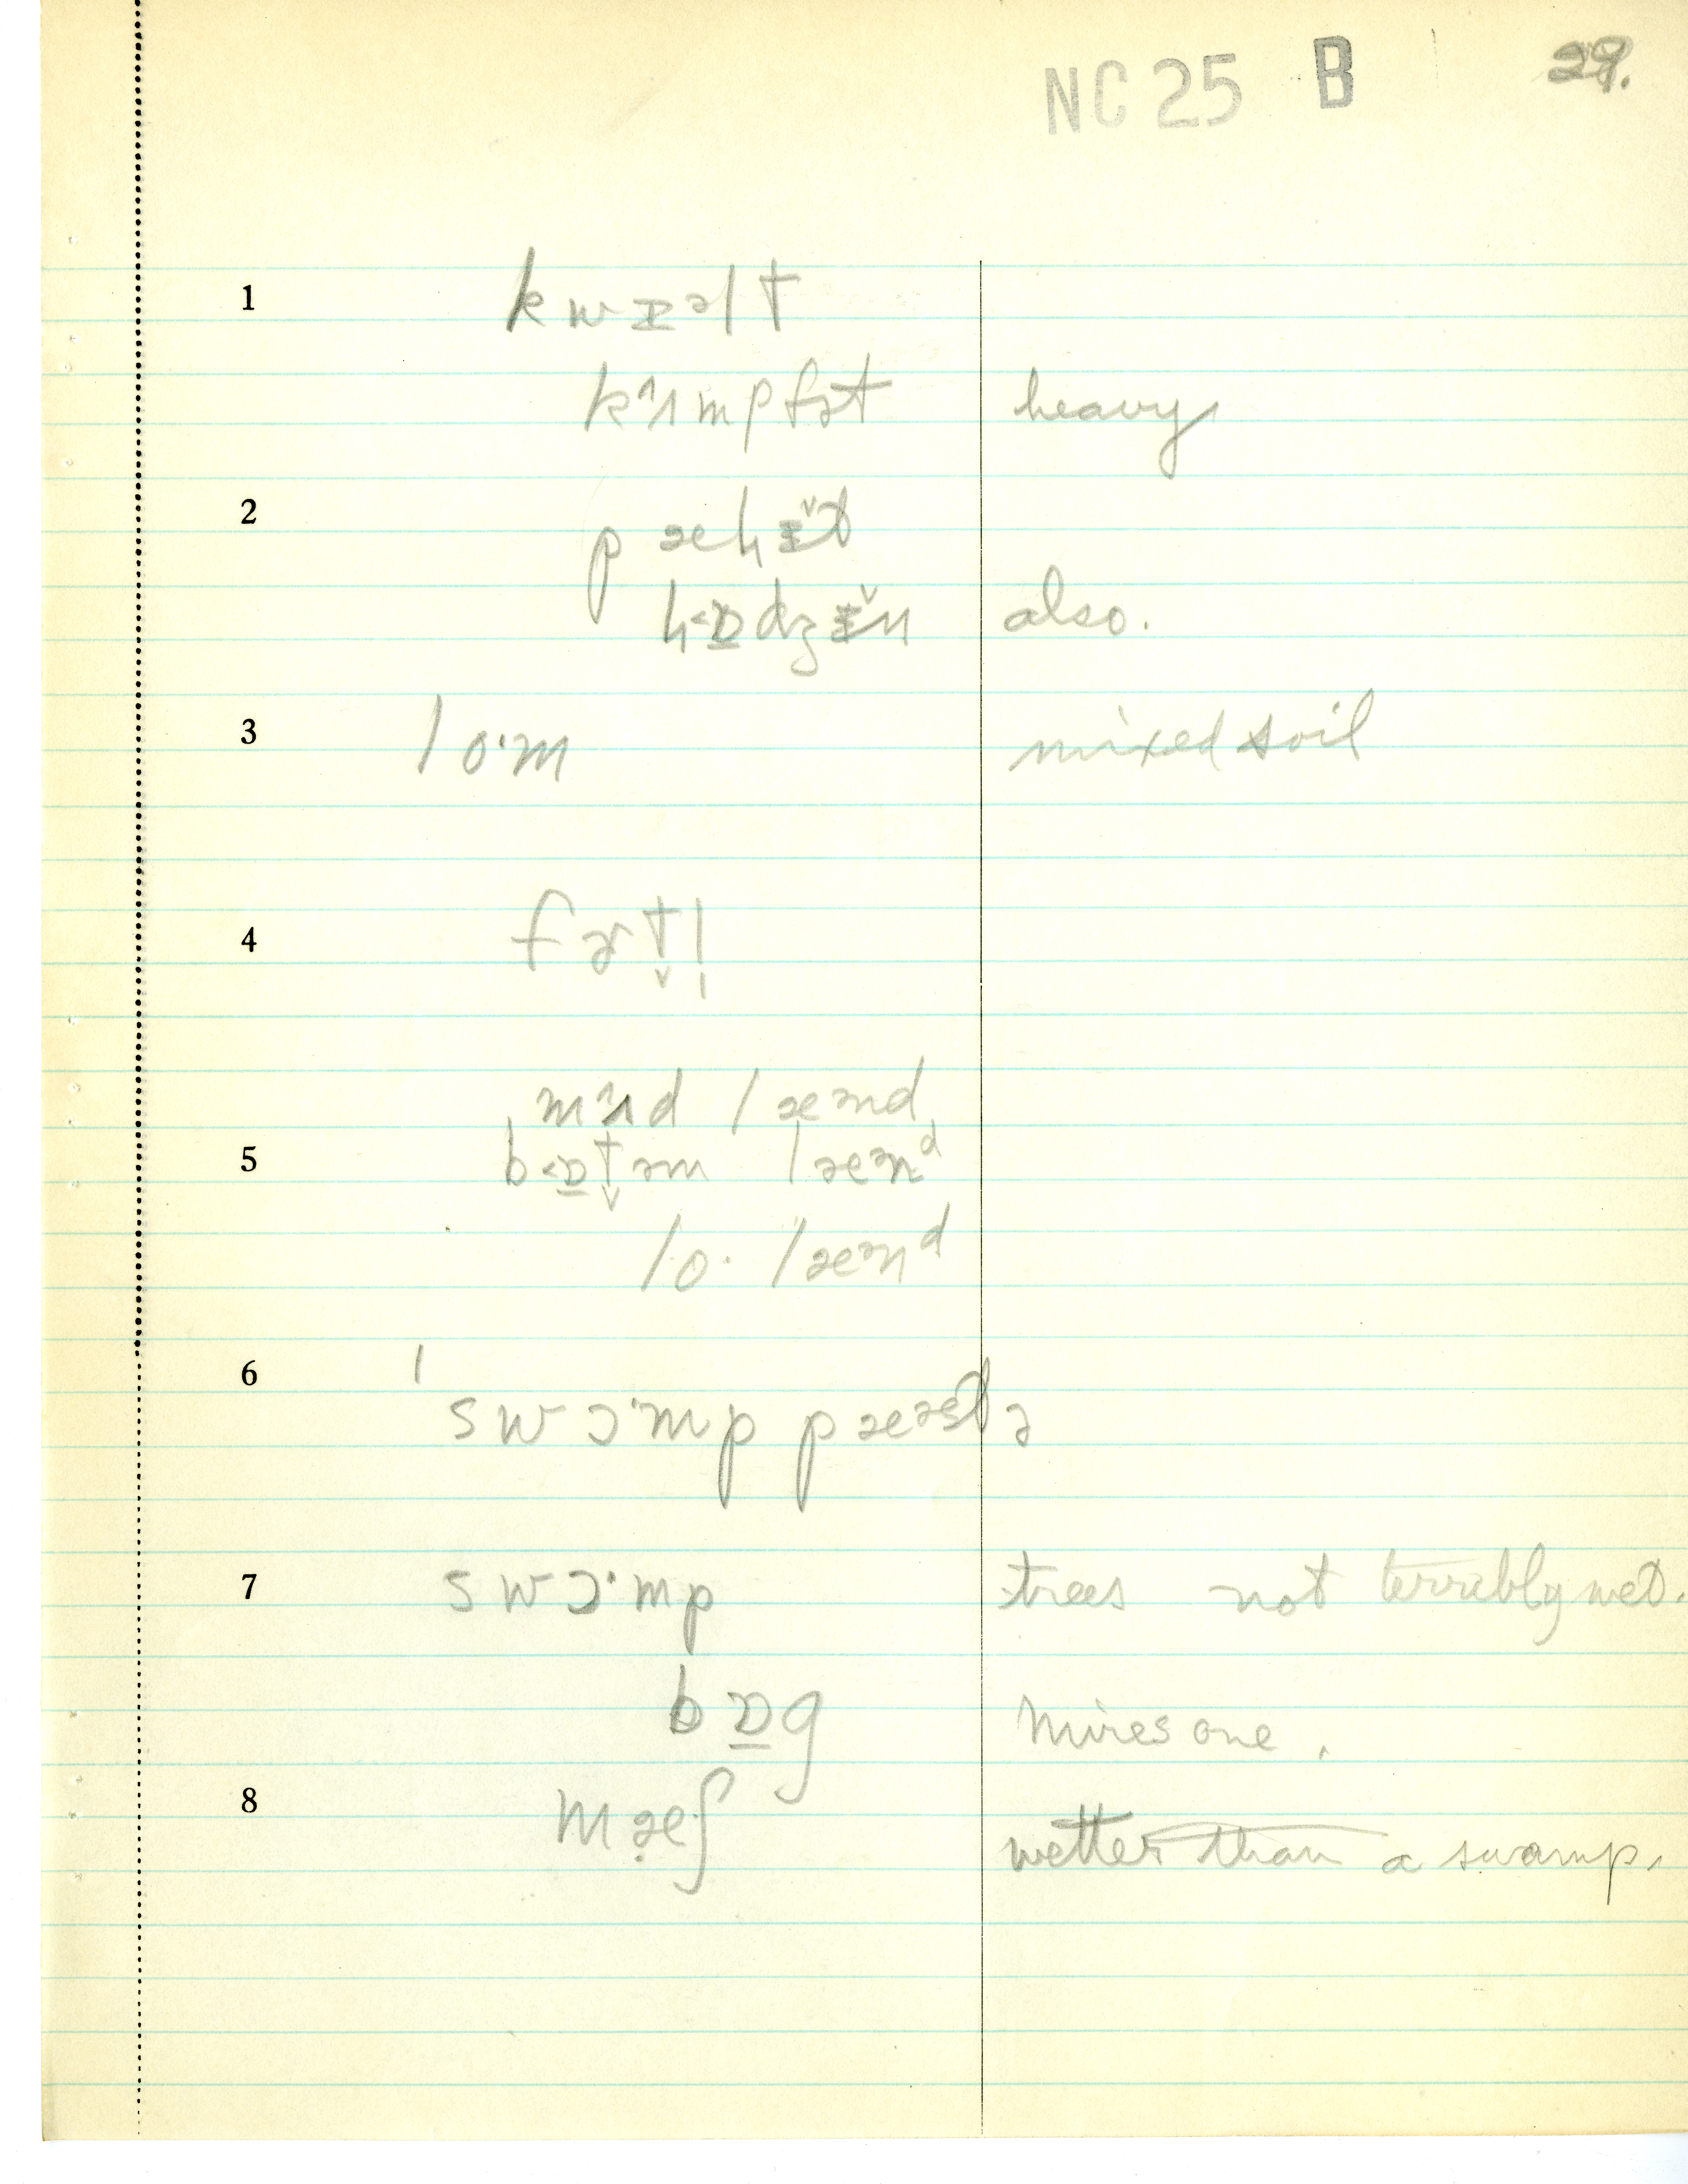 NC 25 B 29.
1 kwɪəlt
kʌmpfət heavy
2
also.
3 lo·m mixed soil
4 fɚt̬l̩
mʌd lænd
5 b<ɒt̬əm læənᵈ
lo· læənᵈ
6 swɔ·mp
7 swɔ·mp trees not terribly wet.
bɒg mires one.
8 mæʃ wetter than a swamp.